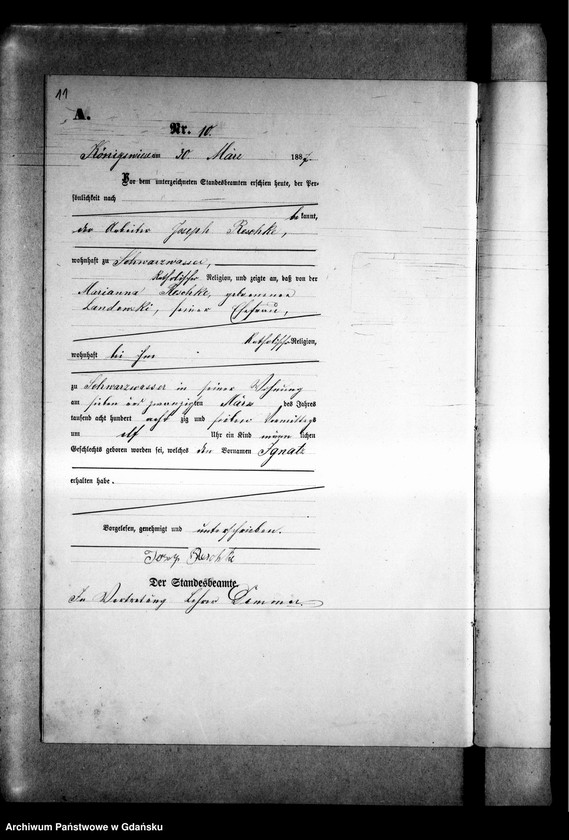 11
A.
Nr. 10.
Königswiese am 30. März 1887.
Vor dem unterzeichneten Standesbeamten erschien heute, der Per-
sönlichkeit nach
bekannt,
der Arbeiter Joseph Reschke,
wohnhaft zu Schwarzwasser,
Katholischer Religion, und zeigte an, daß von der
Marianna Reschke, geborenen
Landowski, seiner Ehefrau,
Katholischer Religion,
wohnhaft bei ihm
zu Schwarzwasser in seiner Wohnung
am sieben und zwanzigsten März des Jahres
tausend acht hundert achtzig und sieben Vormittags
um elf Uhr ein Kind männlichen
Geschlechts geboren worden sei, welches den Vornamen Ignatz
erhalten habe.
Vorgelesen, genehmigt und unterschrieben.
Reschke
Der Standesbeamte.
In Vertretung Lehrer
Archiwum Państwowe w Gdańsku